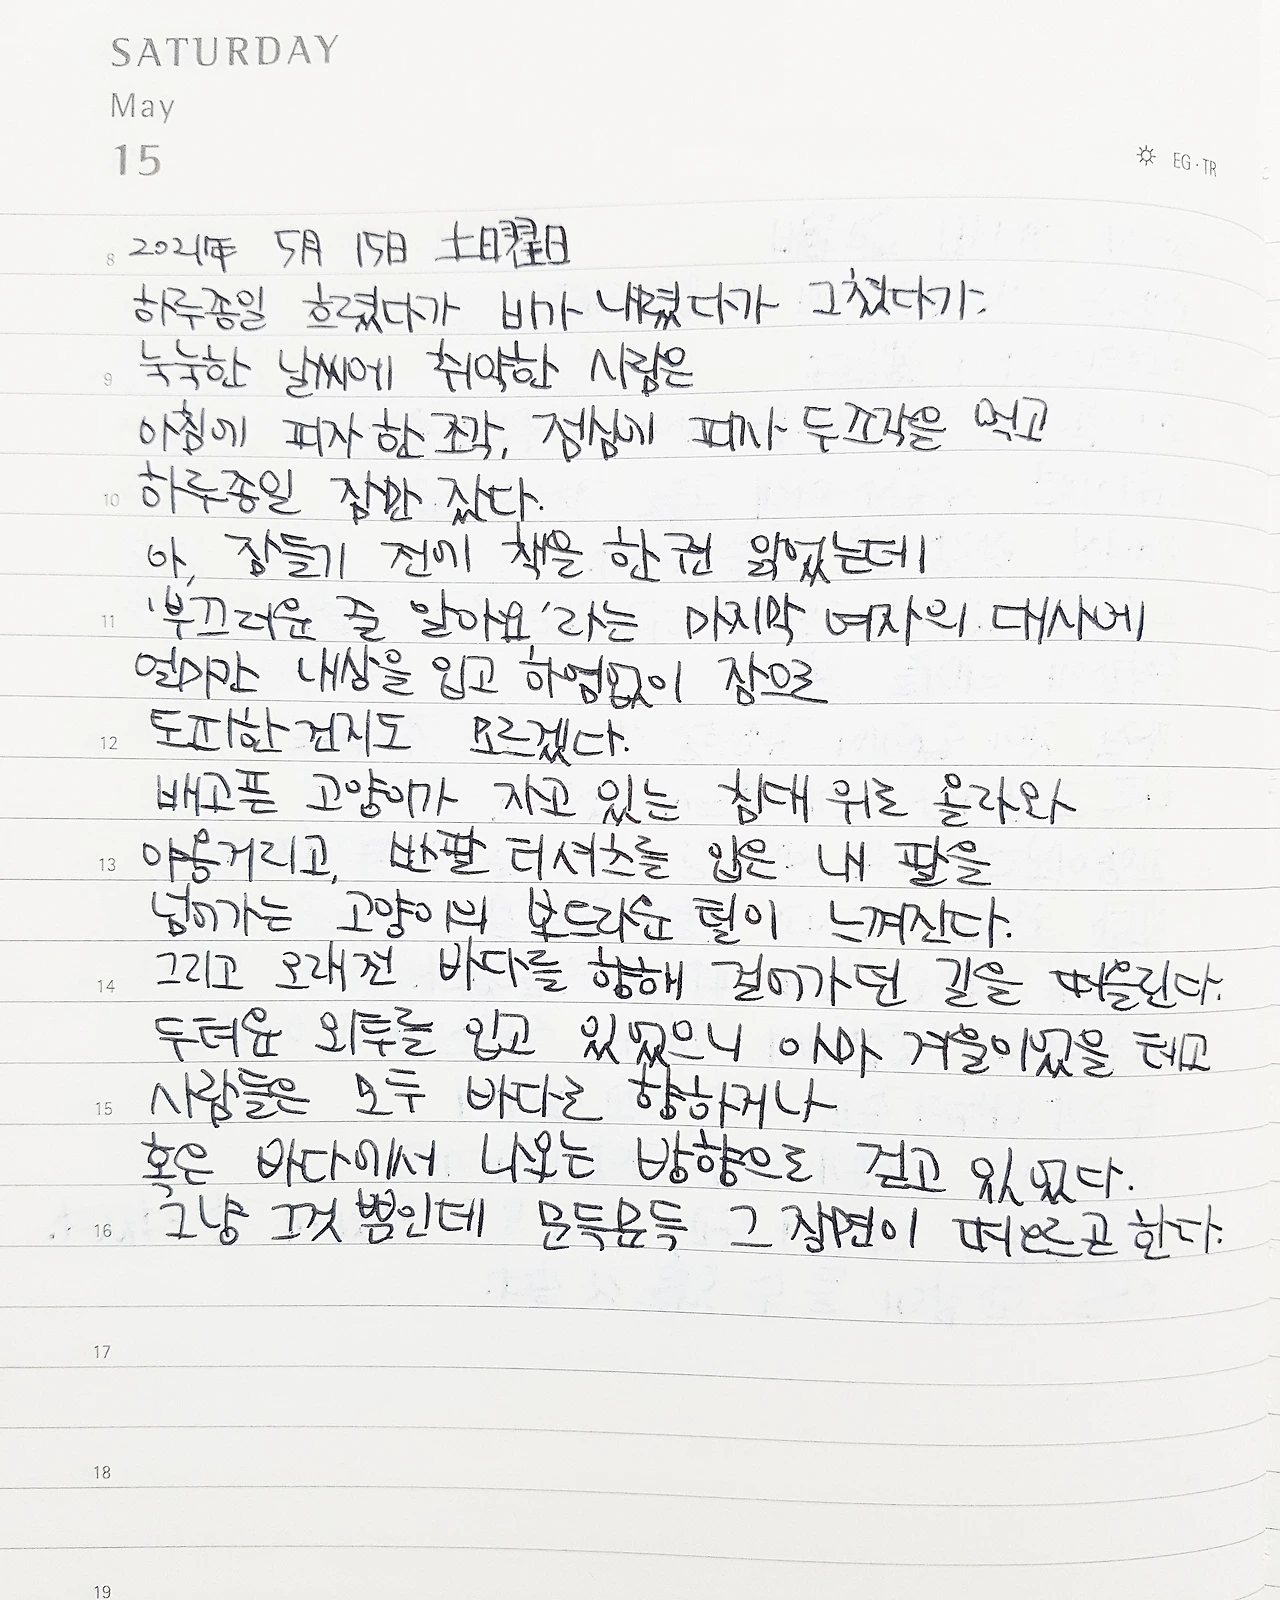 SATURDAY
May
15
EG·TR
8 2021年 5月 15日 土日曜日
하루종일 흐렸다가 비가 내렸다가 그쳤다가.
9 눅눅한 날씨에 취약한 사람은
아침에 피자 한 조각, 점심에 피자 두 조각을 먹고
10 하루종일 잠만 잤다.
아, 잠들기 전에 책을 한 권 읽었는데
11 '부끄러운 줄 알아요'라는 마지막 여자의 대사에
얼마만 내상을 입고 하염없이 잠으로
12 도피한건지도 모르겠다.
배고픈 고양이가 자고 있는 침대 위로 올라와
13 야옹거리고, 반팔 티셔츠를 입은 내 팔을
넘어가는 고양이의 보드라운 털이 느껴진다.
14 그리고 오래 전 바다를 향해 걸어가던 길을 떠올린다.
두터운 외투를 입고 있었으니 아마 겨울이었을 테고
15 사람들은 모두 바다로 향하거나
혹은 바다에서 나오는 방향으로 걷고 있었다.
16 그냥 그것 뿐인데 문득문득 그 장면이 떠오르곤 한다.
17
18
19